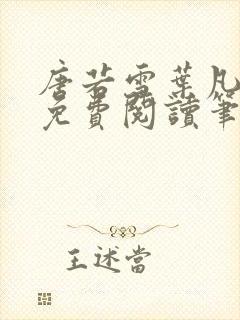 唐若雪葉凡
免費閱讀筆
王述當